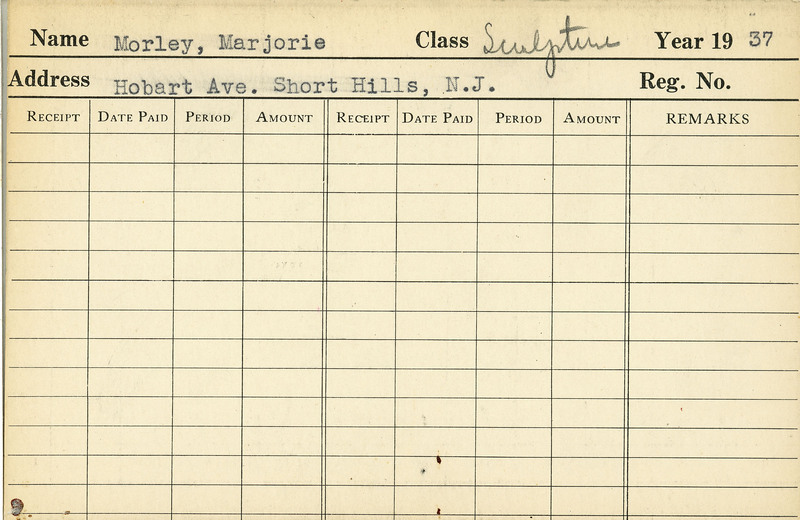 Name Morley, Marjorie Class Sculpture Year 19 37
Address Hobart Ave. Short Hills, N.J. Reg. No.
RECEIPT DATE PAID PERIOD AMOUNT RECEIPT DATE PAID PERIOD AMOUNT REMARKS